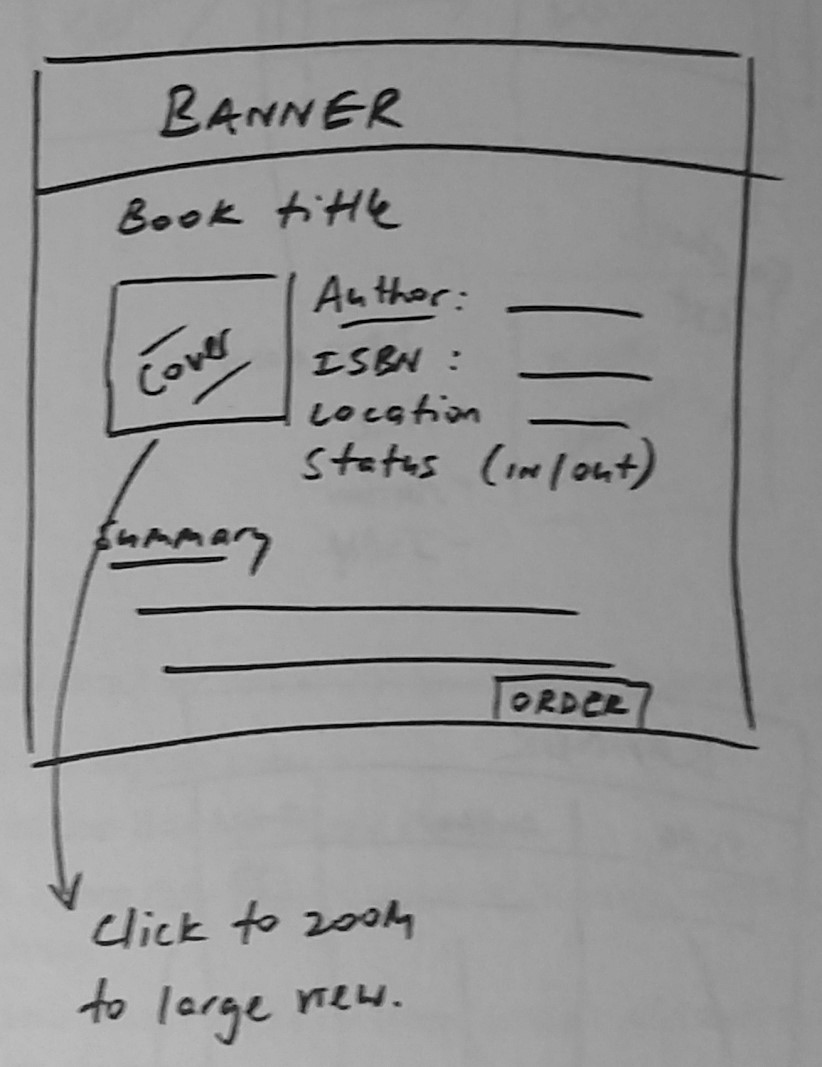 BANNER
Book title
Cover
Author:
ISBN :
Location
Status (in/out)
Summary
ORDER
Click to zoom
to large view.